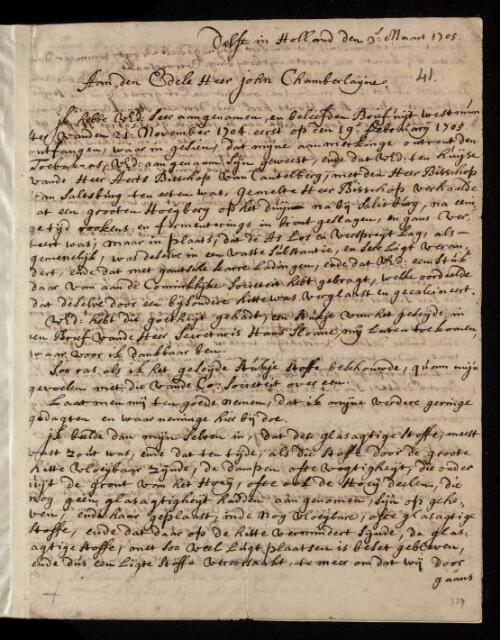 Delft in Holland den 3e. Maart 1705.
41.
Aan den Edele Heer John Chamberlayne
Ik hebbe UEd: seer aangenamen, en beleefden Brief uijt westmun
ter van den 21e. November 1704. eerst op den 19e. Februarij 1705.
ontfangen, waar in gesien, dat mijne aanmerkinge ontrent den
Toebak as, UEd: aangenaam sijn geweest, ende dat UEd: ten huijse
vande Heer Aerts Bisschop van Cantelberg, met den Heer Bisschop
van Saltsburg ten eten was, gemelte Heer Bisschop verhaalde
dat een grooten Hoeijberg op het duijn na bij Salisburg, na eeni
ge tijd rookens, en formenterings in brant geslagen, en gans ver
teert was; maar in plaats, dat de As Los en verspreijt Lag, als
gemeenlijk, was deselve in een vaste substantie, en seer Ligt veran,
dert, ende dat met gantsche karre Ladingen, ende dat UEd: een stuk
daar van aan de Coninklijke Societeit hebt gebragt, welke oordeelde
dat deselve door een bijsondere hitte was verglaast en gecalcineert.
UEd: hebt die goetheijt gehadt, een stukje van het geseijde, in
een Brief vande Heer Secretaris Hans Sloane, mij Laten toekomen,
waar voor ik dankbaar ben.
Soo ras als ik het geseijde stukje stoffe beschouwde, quam mijn
gevoelen met die vande Co: Societeit over een.
Laat men mij ten goede nemen, dat ik mijne verdere geringe
gedagten en waarneminge hier bij doe.
Ik beelde dan mijn selven in, dat dese glasagtige stoffe, meest
vast zout was, ende dat ten tijde, als die stoffe door de groote
hitte vloeijbaar zijnde, de dampen, ofte vogtigheijt, die onder
uijt de gront van het Hoeij, ofte ook de Hoeij deelen, die
nog geen glasagtigheijt hadden aangenomen, sijn op gehe,
ven, ende haar geplaast, inde nog vloeijbare, ofte glasagtige
stoffe, ende dat daar op de hitte vermindert sijnde, de glas,
agtige stoffe, met soo veel Lugt plaatsen is beset gebleven,
ende dus een Ligte stoffe veroorsaakt, te meer om dat wij door
gaans